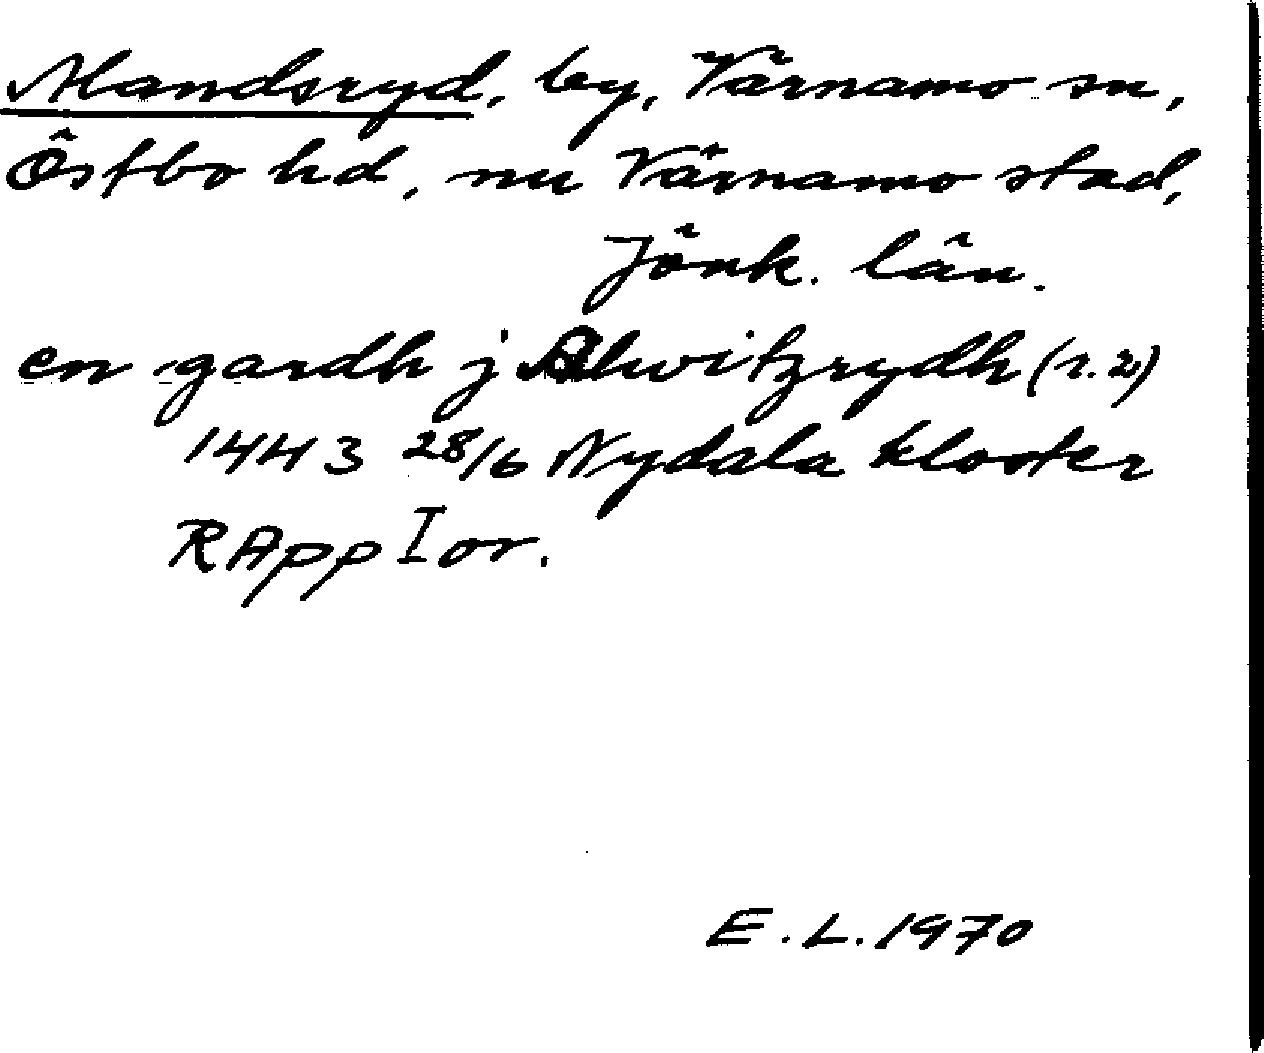 Alandsryd, by, Värnamo sn,
Östbo hd, nu Värnamo stad,
Jönk. län.
en gardh j Alwitzrydh (r. 2)
1443 28/6 Nydala kloster
RApp I or.
E. L. 1970